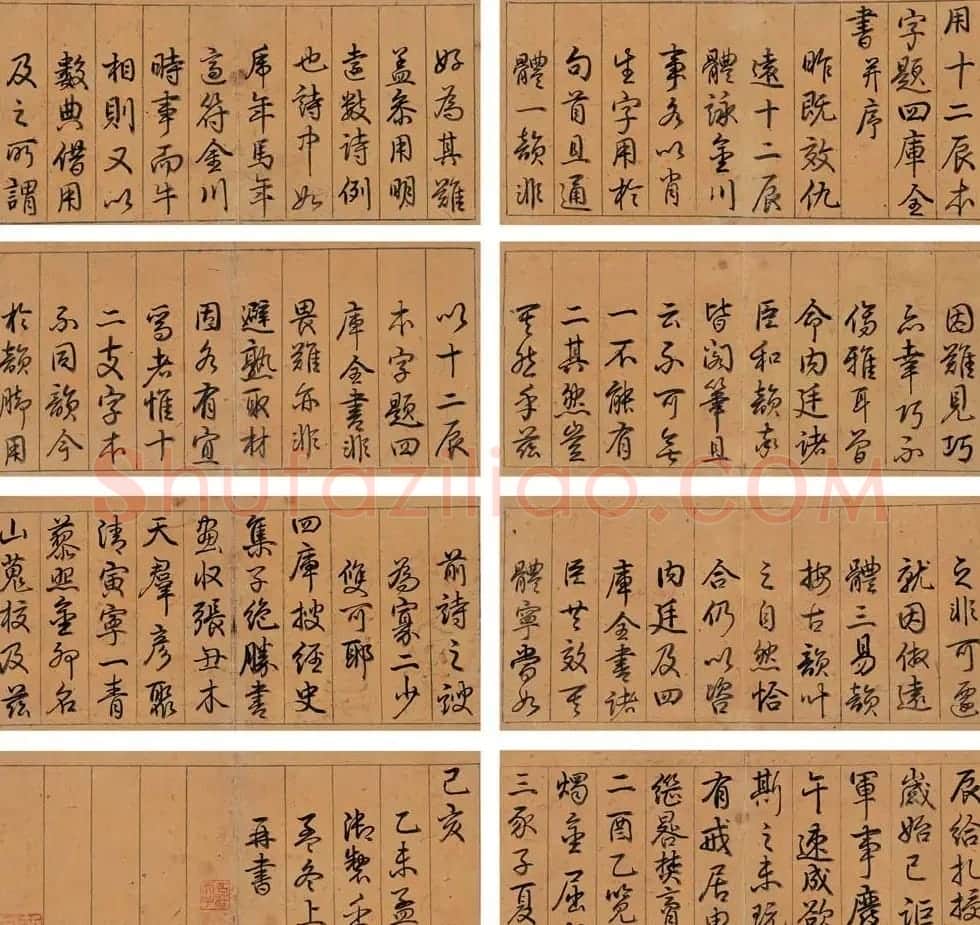 用十二辰本
字題四庫全
書并序
昨既效仇
遠十二辰
體詠金川
事各以肖
生字用於
句首且通
體一韻非
好為其難
蓋參用明
遠數詩例
也詩中如
虎年馬年
適符金川
時事而牛
相則又以
數典借用
及之所謂
因難見巧
亦幸巧不
傷雅耳曾
命內廷諸
臣和韻率
皆閣筆且
云不可無
一不能有
二其然豈
其然乎茲
以十二辰
本字題四
庫全書非
畏難亦非
避熟取材
固各有宜
焉者惟十
二支字本
不同韻今
於韻腳用
之非可遷
就因倣遠
體三易韻
按古韻叶
之自然恰
合仍以咨
內廷及四
庫全書諸
臣共效其
體寧當如
前詩之謏
為寡二少
雙可耶
四庫搜經史
集子絕勝書
畫收張丑木
天羣彥聚
清寅寧一青
藜照金卯名
山蒐校及茲
辰給札授
歲始巳詎
軍事
午速成欲
斯之未玩
有戒居申
繼晷焚膏
二酉乙覽
燭金屈
三豕子夏
己亥
乙未孟
御製
孟冬上
再書
Shufaziliao.COM